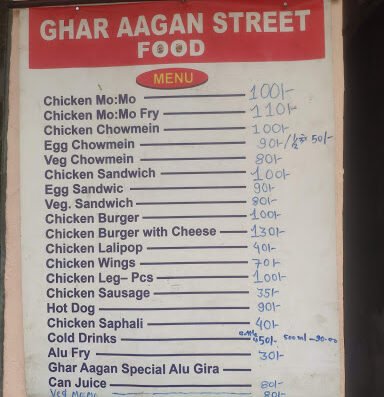 GHAR AAGAN STREET
FOOD
MENU
Chicken Mo:Mo 100/-
Chicken Mo:Mo Fry 110/-
Chicken Chowmein 100/-
Egg Chowmein 90/-/½ 50/-
Veg Chowmein 80/-
Chicken Sandwich 100/-
Egg Sandwic 90/-
Veg. Sandwich 80/-
Chicken Burger 100/-
Chicken Burger with Cheese 130/-
Chicken Lalipop 40/-
Chicken Wings 70/-
Chicken Leg– Pcs 100/-
Chicken Sausage 35/-
Hot Dog 90/-
Chicken Saphali 40/-
Cold Drinks 50/- 500ml
Alu Fry 30/-
Ghar Aagan Special Alu Gira
Can Juice 80/-
Veg Mo:Mo 80/-